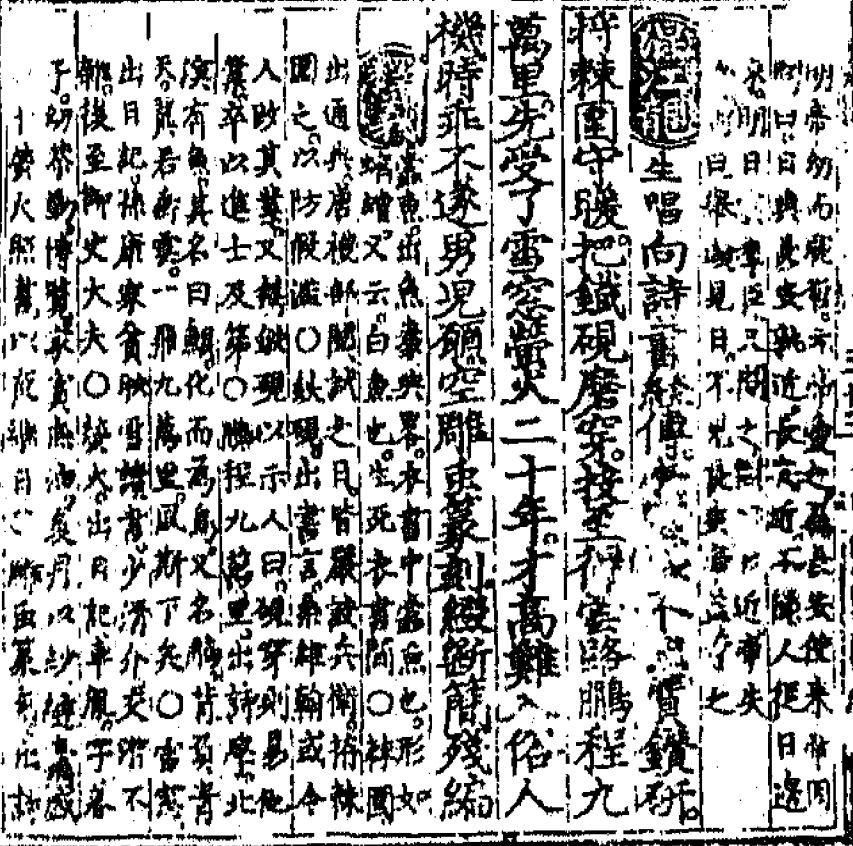 明帝幼而聰哲。元帝愛之。屬長安使來。帝因
問曰。日與長安孰近。長安近。不聞人從日邊
來。明日宴羣臣。又問之。對曰日近。帝失
曰舉頭見日。不見長安。益奇之
混江龍生唱向詩書經傳。費鑽研。
將棘圍守暖。把鐵硯磨穿。投至得雲路鵬程九
萬里。先受了雪窓螢火二十年。才高難入俗人
機。時乖不遂男児願。空雕虫篆刻。綴斷簡殘編
蠹魚。出魚囊與畧。衣書中蠹魚也。形如
又云。白魚也。生死衣書間〇棘圍
出通典。唐禮部閱試之日。皆嚴設兵衛。栫棘
圍之。以防假濫〇鉄硯。出書言。桑維翰或令
人改其業。又鑄鉄硯以示人曰。硯穿則易他
業。卒以進士及第〇鵬程九萬里。出詩學。北
溟有魚。其名曰鯤。化而為鳥。又名鵬。背負青
天。翼若垂雲。一飛九萬里。風斯下矣〇雪窓
出日記。孫康家貧。映雪讀書。少清介。交游不
雜。後至御史大夫〇螢火。出日記。車胤。字武
子。幼恭勤。博覽。家貧無油。夏月以紗練囊盛
十螢火照書。以夜継日〇雕虫篆刻。出